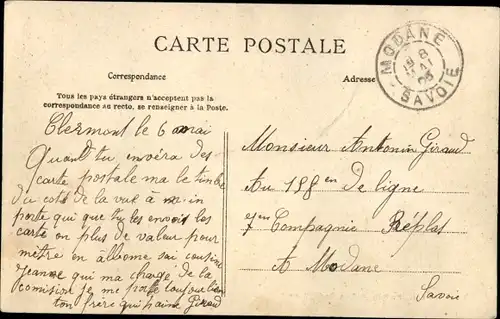 CARTE POSTALE
Correspondance
Adresse
Tous les pays étrangers n'acceptent pas la
correspondance au recto, se renseigner à la Poste.
MODANE
8
MAI
SAVOIE
Clermont le 6 mai
Quand tu envéra des
carte postale ma le timbre
du coté de la vue à me in
porte qui que tu les envois les
carte on plus de valeur pour
mètre en albeme sai cousine
Jeanne qui ma charge de la
comision je me porte toujour bien
ton frère qui t'aime Giraud
Monsieur Antonin Giraud
Au 158en De ligne
7en Compagnie Réplat
A Modane
Savoie